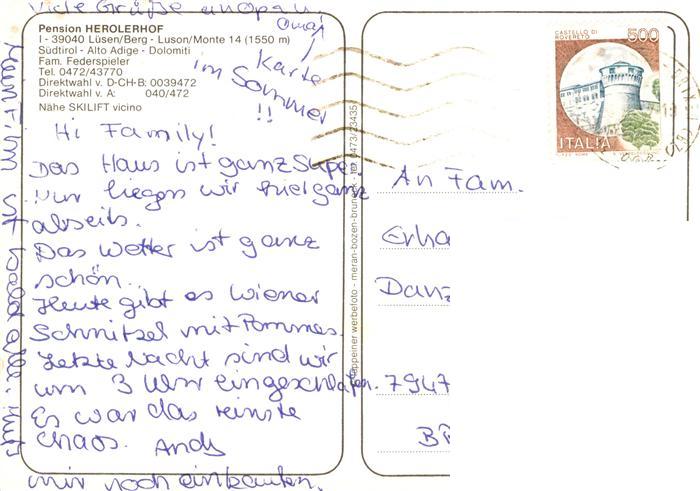 Viele Grüße an Opa
Oma
Karte
im Sommer
!!
Pension HEROLERHOF
I - 39040 Lüsen/Berg - Luson/Monte 14 (1550 m)
Südtirol - Alto Adige - Dolomiti
Fam. Federspieler
Tel. 0472/43770
Direktwahl v. D-CH-B: 0039472
Direktwahl v. A: 040/472
Nähe SKILIFT vicino
Hi Family!
Das Haus ist ganz Super.
Nur liegen wir ganz
abseits.
Das Wetter ist ganz
schön.
Heute gibt es Wiener
Schnitzel mit Pommes.
Letzte Nacht sind wir
um 3 Uhr eingeschlafen.
Es war das reinste
Chaos. Andy
mir noch einkaufen.
Mein Film ist bald alle. Muß
tappeiner werbefoto - meran-bozen-brun
0473/23435
CASTELLO DI
ROVERETO
500
ITALIA
An Fam.
Erha
Danz
7947